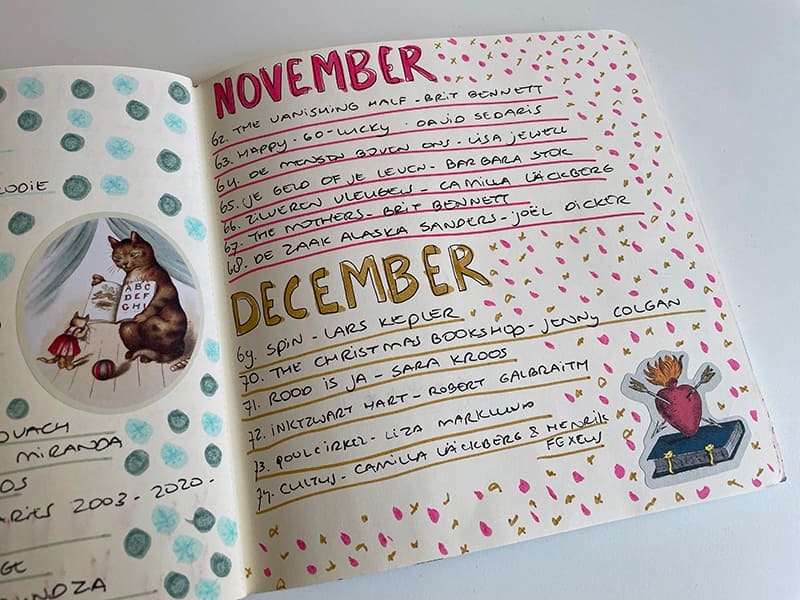 ODIE
A B C
D E F
G H I
OVACH
MIRANDA
OS
ARIES 2003 - 2020 -
GE
NDOZA
NOVEMBER
62. THE VANISHING HALF - BRIT BENNETT
63. HAPPY-GO-LUCKY - DAVID SEDARIS
64. DE MENSEN BOVEN ONS - LISA JEWELL
65. JE GELD OF JE LEVEN - BARBARA STOK
66. ZILVEREN VLEUGELS - CAMILLA LÄCKBERG
67. THE MOTHERS - BRIT BENNETT
68. DE ZAAK ALASKA SANDERS - JOËL DICKER
DECEMBER
69. SPIN - LARS KEPLER
70. THE CHRISTMAS BOOKSHOP - JENNY COLGAN
71. ROOD IS JA - SARA KROOS
72. INKTZWART HART - ROBERT GALBRAITH
73. POOLCIRKEL - LIZA MARKLUND
74. CULTUS - CAMILLA LÄCKBERG & HENRIK
FEXEUS